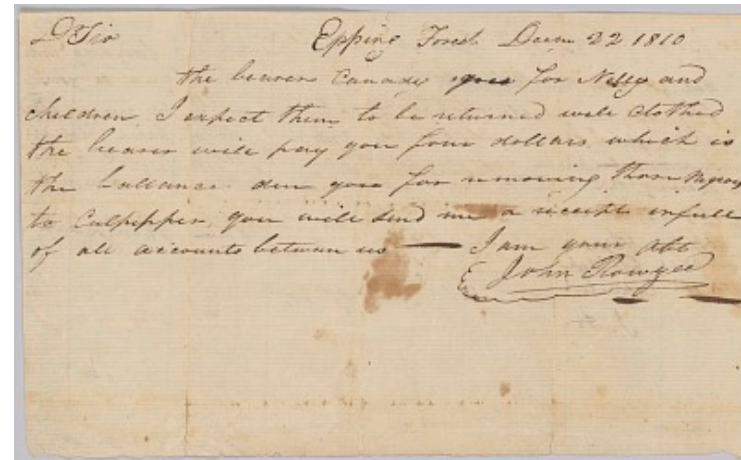 Dr Sir Epping Forest Decm 22 1810
the bearer Canady goes for Nelly and
children I expect them to be returned well clothed
the bearer will pay you four dollars which is
the ballance due you for removing those Negroes
to Culpepper, you will send me a receipt in full
of all accounts between us — I am your
John Rowzee